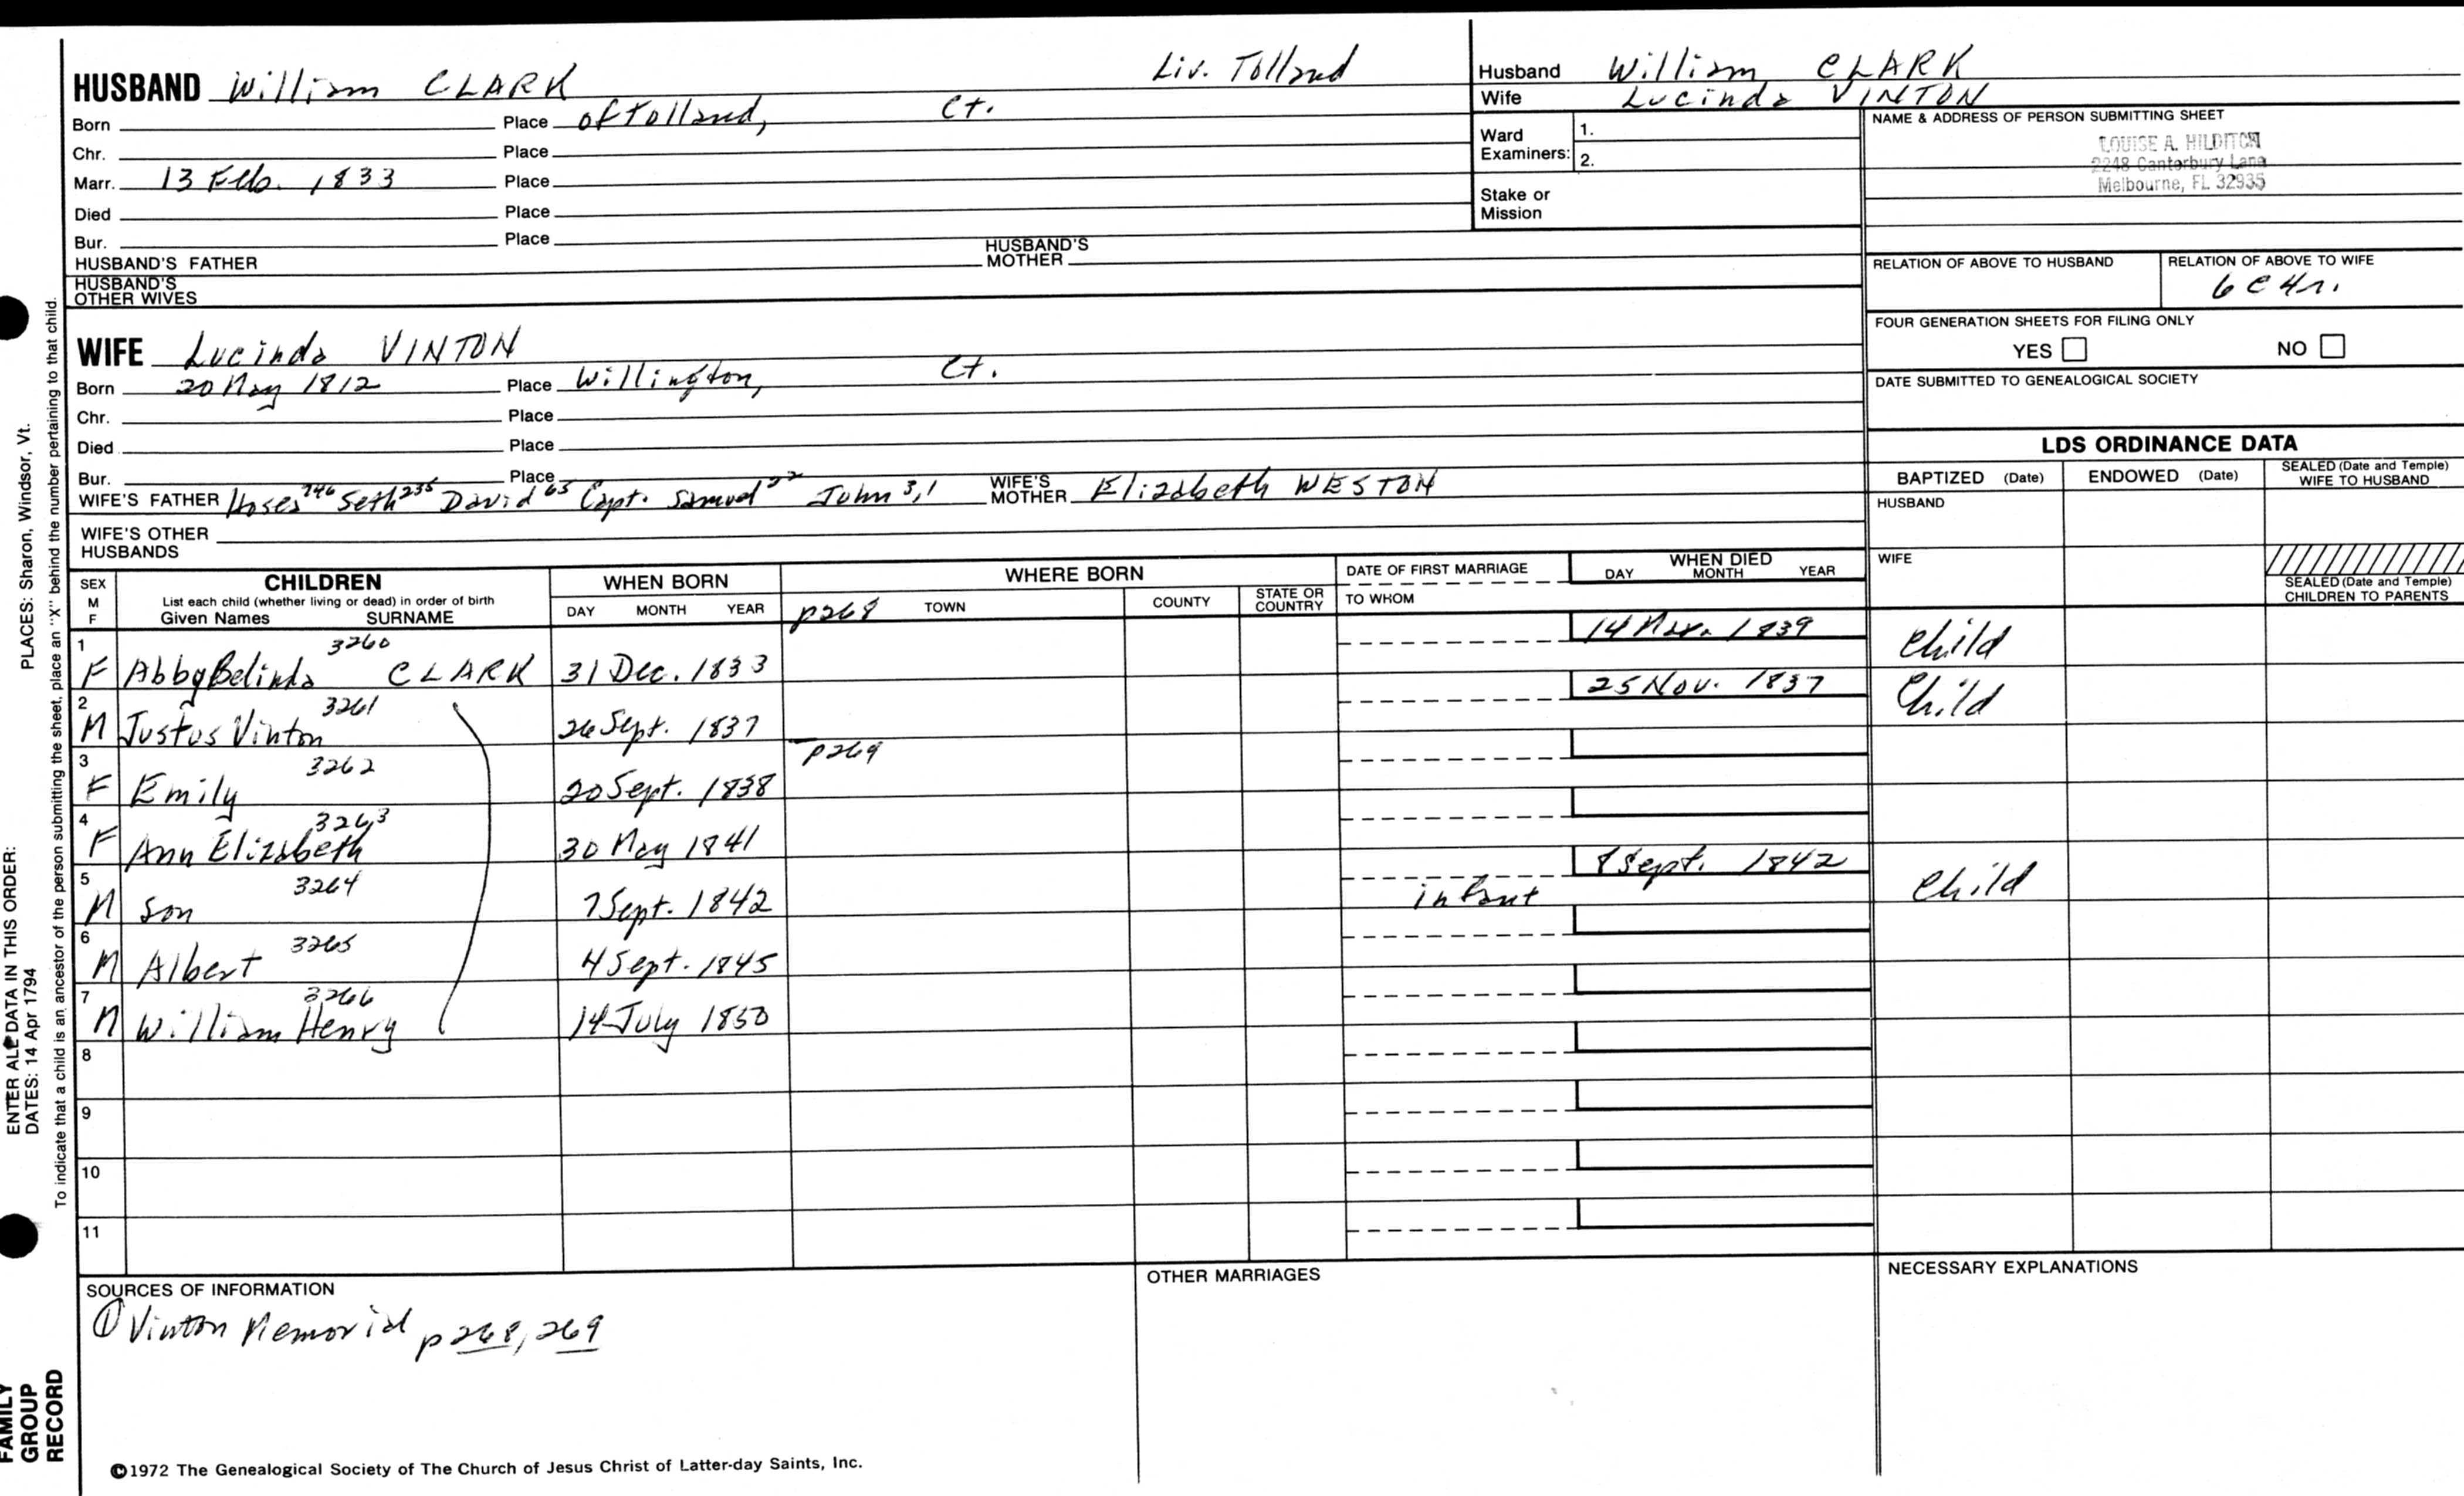 HUSBAND William CLARK Liv. Tolland
Born Place of Tolland, Ct.
Chr. Place
Marr. 13 Feb. 1833 Place
Died Place
Bur. Place
HUSBAND'S FATHER HUSBAND'S MOTHER
HUSBAND'S OTHER WIVES
Husband William CLARK
Wife Lucinda VINTON
Ward Examiners: 1.
2.
Stake or Mission
NAME & ADDRESS OF PERSON SUBMITTING SHEET
LOUISE A. HILDITCH
2248 Canterbury Lane
Melbourne, FL 32935
RELATION OF ABOVE TO HUSBAND
RELATION OF ABOVE TO WIFE
6 C 4 r.
FOUR GENERATION SHEETS FOR FILING ONLY
YES NO
DATE SUBMITTED TO GENEALOGICAL SOCIETY
WIFE Lucinda VINTON
Born 20 May 1812 Place Willington, Ct.
Chr. Place
Died Place
Bur. Place
WIFE'S FATHER Hosea 746 Seth 235 David 65 Capt. Samuel 22 John 3,1 WIFE'S MOTHER Elizabeth WESTON
WIFE'S OTHER HUSBANDS
LDS ORDINANCE DATA
BAPTIZED (Date) ENDOWED (Date) SEALED (Date and Temple) WIFE TO HUSBAND
HUSBAND
WIFE
SEALED (Date and Temple) CHILDREN TO PARENTS
SEX M F
CHILDREN
List each child (whether living or dead) in order of birth
Given Names SURNAME
WHEN BORN
DAY MONTH YEAR
WHERE BORN
p268 TOWN COUNTY STATE OR COUNTRY
DATE OF FIRST MARRIAGE
TO WHOM
WHEN DIED
DAY MONTH YEAR
1 F Abby Belinda 3260 CLARK 31 Dec. 1833 14 Mar. 1839 Child
2 M Justus Vinton 3261 26 Sept. 1837 25 Nov. 1837 Child
3 F Emily 3262 20 Sept. 1838 p269
4 F Ann Elizabeth 3263 30 May 1841
5 M Son 3264 7 Sept. 1842 infant 8 Sept. 1842 Child
6 M Albert 3265 4 Sept. 1845
7 M William Henry 3266 14 July 1850
8
9
10
11
SOURCES OF INFORMATION
① Vinton Memorial p268, 269
OTHER MARRIAGES
NECESSARY EXPLANATIONS
©1972 The Genealogical Society of The Church of Jesus Christ of Latter-day Saints, Inc.
PLACES: Sharon, Windsor, Vt.
ENTER ALL DATA IN THIS ORDER:
DATES: 14 Apr 1794
To indicate that a child is an ancestor of the person submitting the sheet, place an "X" behind the number pertaining to that child.
FAMILY
GROUP
RECORD